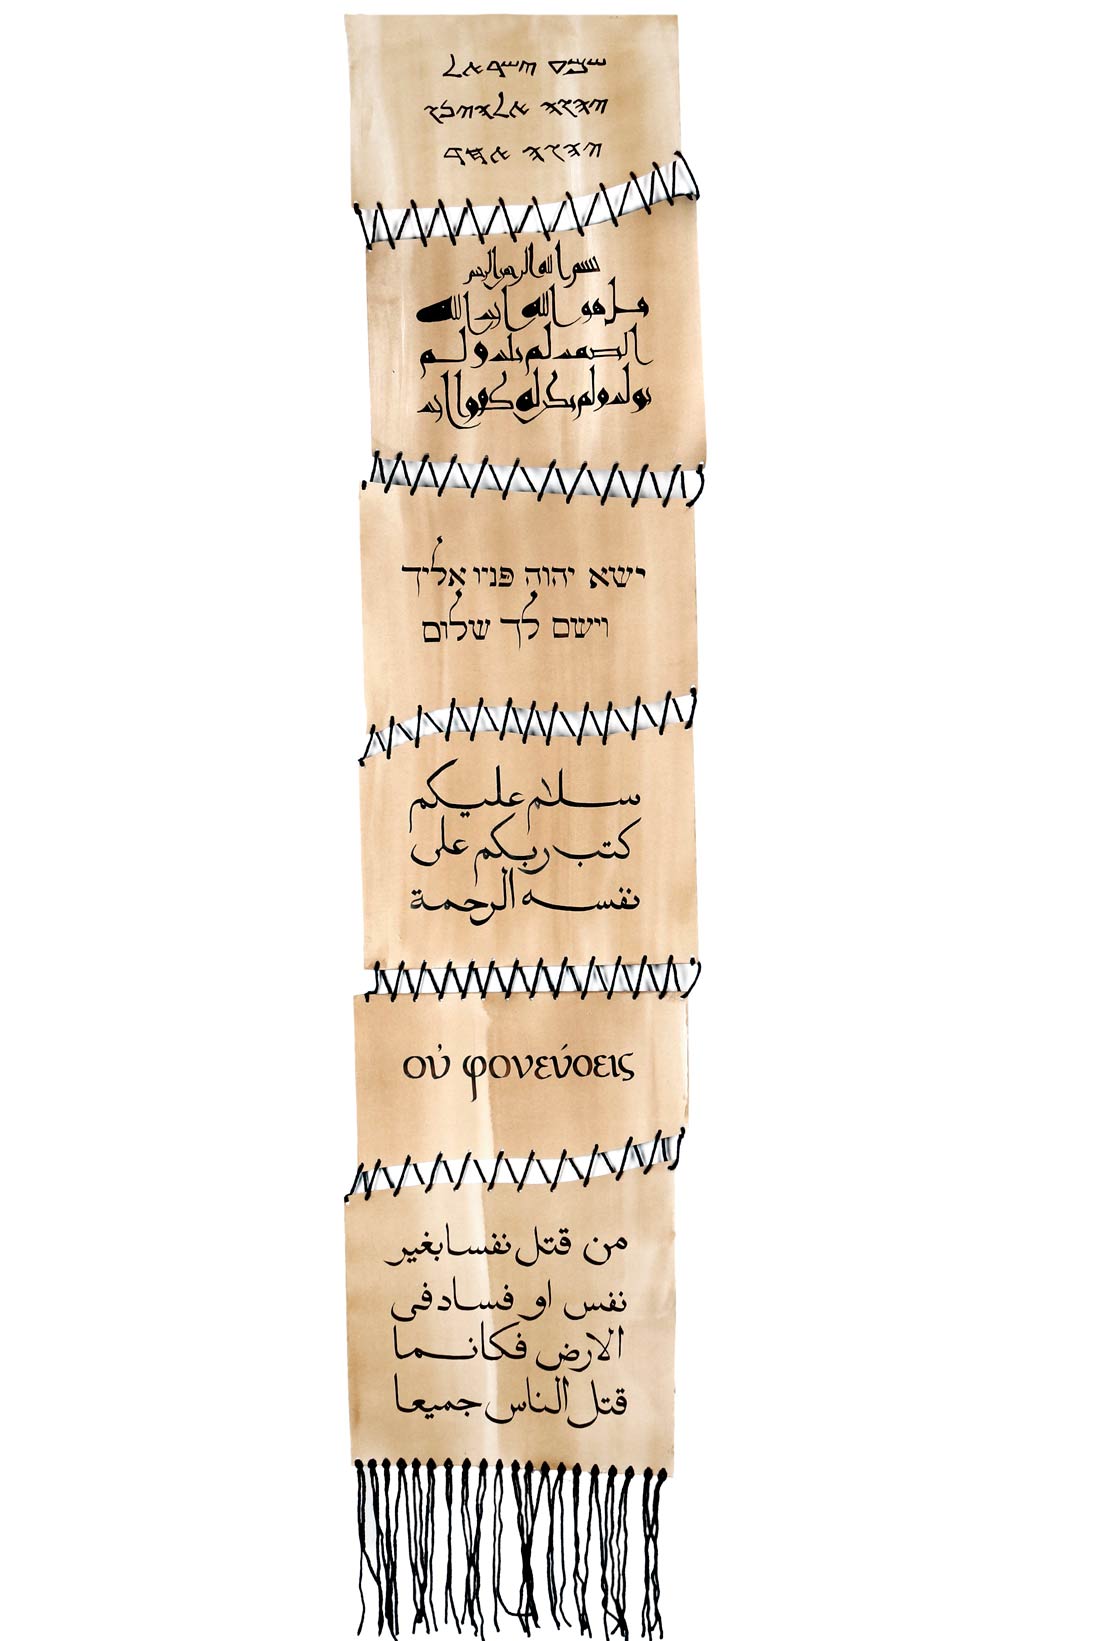 ࠔࠌࠏ ࠉࠔࠓࠀࠋ
ࠉࠄࠅࠄ ࠀࠋࠄࠉࠍࠅ
ࠉࠄࠅࠄ ࠀࠇࠃ
بسم الله الرحمن الرحيم
قل هو الله احد الله
الصمد لم يلد ولم
يولد ولم يكن له كفوا احد
ישא יהוה פניו אליך
וישם לך שלום
سلام عليكم
كتب ربكم على
نفسه الرحمة
οὐ φονεύσεις
من قتل نفسا بغير
نفس او فساد فى
الارض فكانما
قتل الناس جميعا